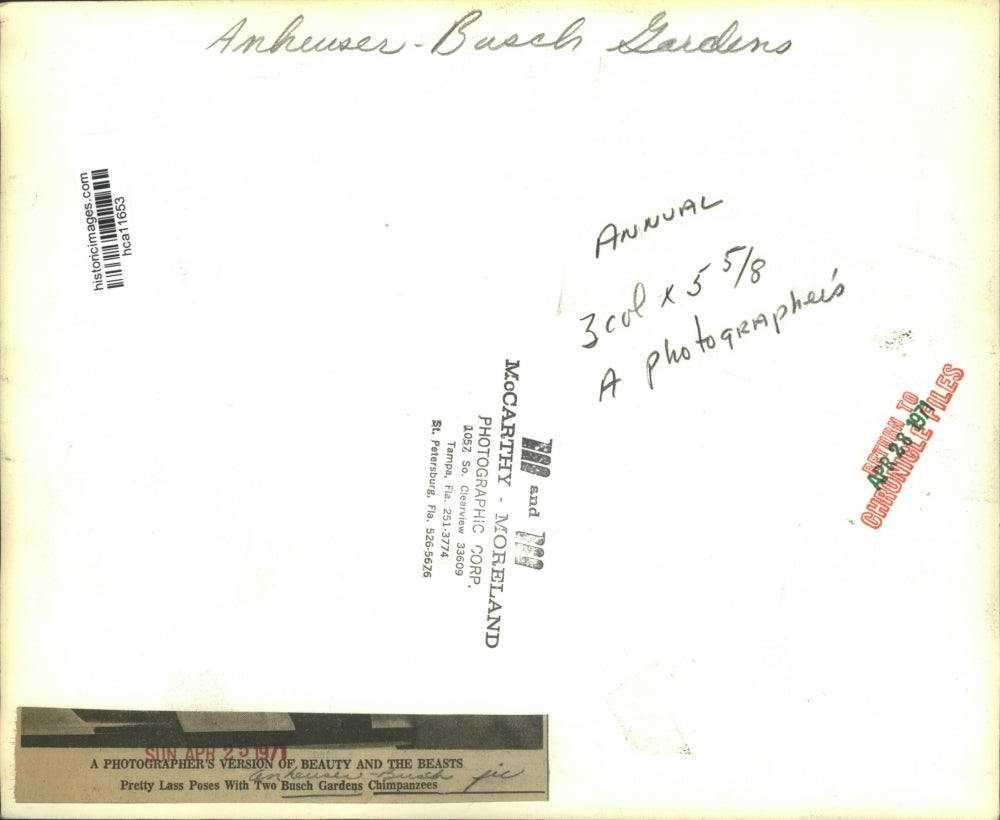 Anheuser-Busch Gardens
historicimages.com
hca11653
ANNUAL
3 col x 5 5/8
A photographer's
m and m
McCARTHY - MORELAND
PHOTOGRAPHIC CORP.
1057 So. Clearview 33609
Tampa, Fla. 251-3774
St. Petersburg, Fla. 526-5676
RETURN TO
APR 28 1971
CHRONICLE FILES
SUN APR 25 1971
A PHOTOGRAPHER'S VERSION OF BEAUTY AND THE BEASTS
Anheuser-Busch
Pretty Lass Poses With Two Busch Gardens Chimpanzees